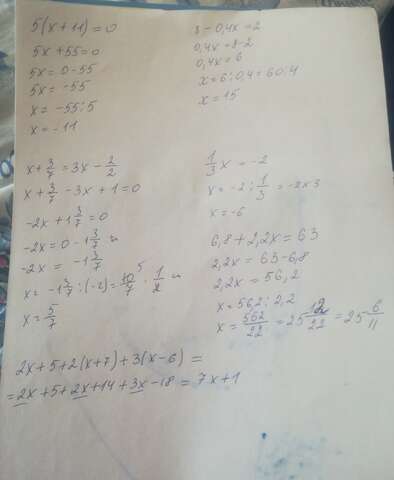 5(x+11)=0
5x+55=0
5x=0-55
5x=-55
x=-55:5
x=-11
8-0,4x=2
0,4x=8-2
0,4x=6
x=6:0,4=60:4
x=15
x+3/7=3x-2/2
x+3/7-3x+1=0
-2x+1 3/7=0
-2x=0-1 3/7
-2x=-1 3/7
x=-1 3/7:(-2)=10/7·1/2
x=5/7
1/3x=-2
x=-2:1/3=-2×3
x=-6
6,8+2,2x=63
2,2x=63-6,8
2,2x=56,2
x=562:2,2
x=562/22=25 12/22=25 6/11
2x+5+2(x+7)+3(x-6)=
=2x+5+2x+14+3x-18=7x+1